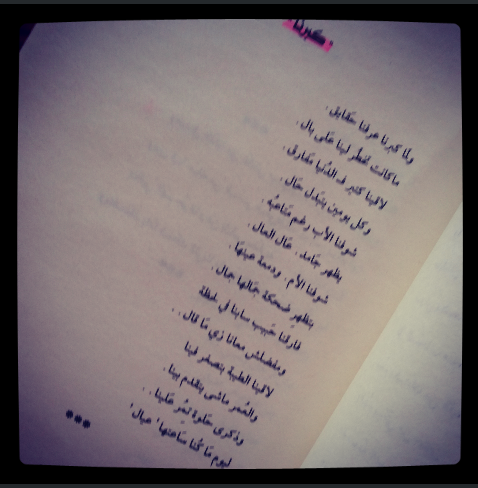 ' كبرنا '
ولمّا كبرنا عرفنا حقايق .
ماكانت تخطُر لينا على بال .
لاقينا كتير فـ الدُنيا مفارق .
وكل يومين بتبدل حال .
شوفنا الأب رغم متاعبُه .
يظهر جامد . حَال المال .
شوفنا الأم . ودمعة عينها .
بتظهر ضحكة جمالها جبال
فارقنا حَبيب سابنا في لحظة
ومفضلش معانا زي مَا قال . .
لاقينا الطيبة بتصغر فينا
والعُمر ماشى بيقدم بينا .
وذكرى حَلوة تمُر علينا . .
ليوم مَا كُنا سَاعتها ' عيال '
***